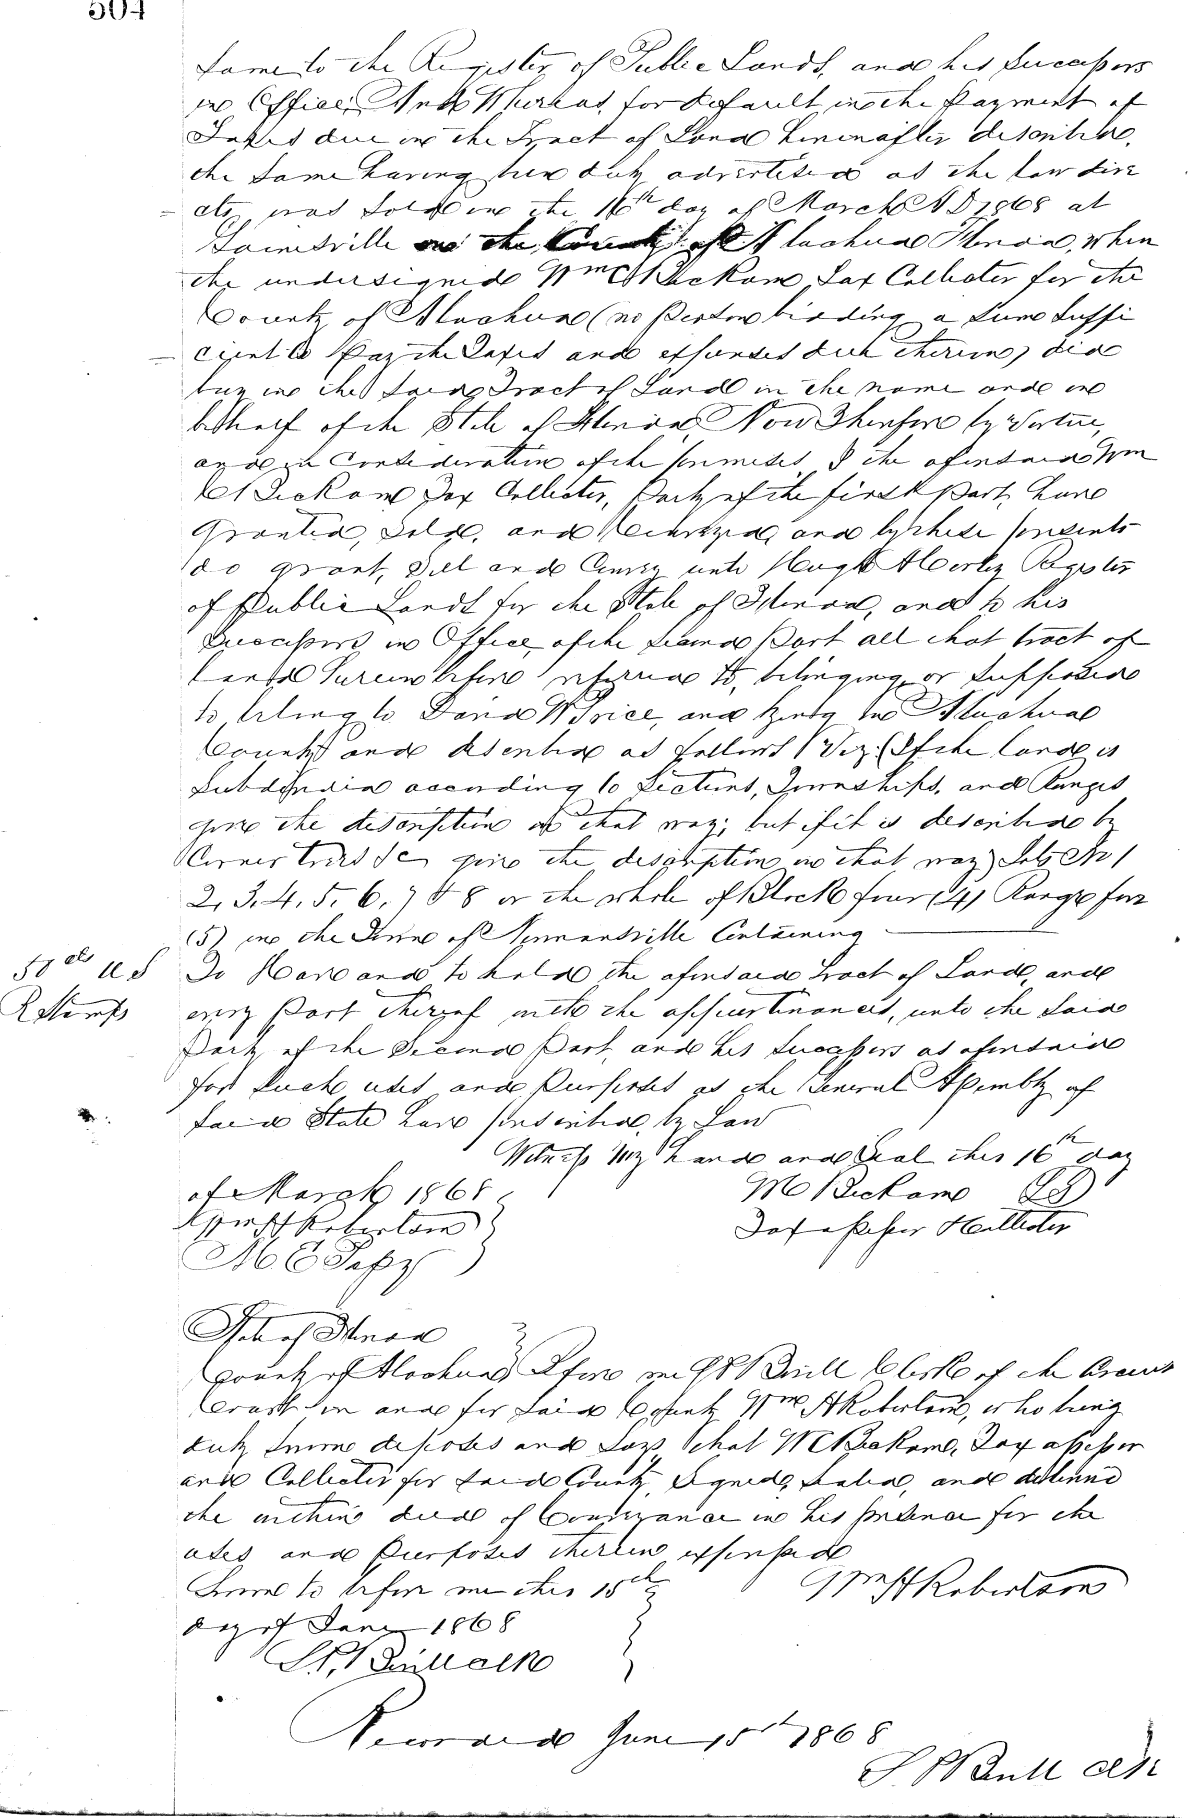 504
same to the Register of Public Lands, and his Successors
in Office, And Whereas, for default in the Payment of
Taxes due on the Tract of Land hereinafter described,
the same having been duly advertised as the law dire
cts, was sold on the 16th day of March A D 1868 at
Gainesville in the County of Alachua Florida, when
the undersigned Wm C Beckham Tax Collector for the
County of Alachua (no person bidding a sum suffi
cient to Pay the Taxes and expenses due thereon) did
buy in the said Tract of Land in the name and on
behalf of the State of Florida, Now Therefore by Virtue,
and in Consideration of the premises, I the aforesaid Wm
C Beckham Tax Collector, Party of the first part, have
Granted, Sold, and Conveyed, and by these presents
do grant, Sell and Convey unto Hugh A Corley Register
of Public Lands for the State of Florida, and to his
Successors in Office, of the Second Part all that tract of
Land hereinbefore referred to, belonging or supposed
to belong to David W Price, and lying in Alachua
County and described as follows (Viz: (If the land is
Subdivided according to Sections, Townships, and Ranges
give the description in that way; but if it is described by
Corner trees &c give the description in that way) Lots No 1
2, 3, 4, 5, 6, 7 & 8 or the whole of Block four (4) Range five
(5) in the Town of Newnansville Containing
50 cts U S To Have and to hold, the aforesaid tract of Land, and
R Stamps every Part thereof with the appurtenances, unto the said
Party of the Second Part, and his Successors as aforesaid
for such uses and Purposes as the General Assembly of
said State have prescribed by Law
Witness My hand and Seal this 16th day
of March 1868 M C Beckham LS
Wm H Robertson Tax assessor & Collector
M. C.
State of Florida
County of Alachua Before me S P Burll Clerk of the Circuit
Court in and for said County Wm H Robertson, who being
duly sworn deposes and says, that W C Beckham, Tax assessor
and Collector for said County, Signed, Sealed, and delivered
the within deed of Conveyance in his presence for the
uses and Purposes therein expressed
Sworn to before me this 15th Wm H Robertson
day of June 1868
S P Burll Clk
Recorded June 15th 1868
S P Burll Clk